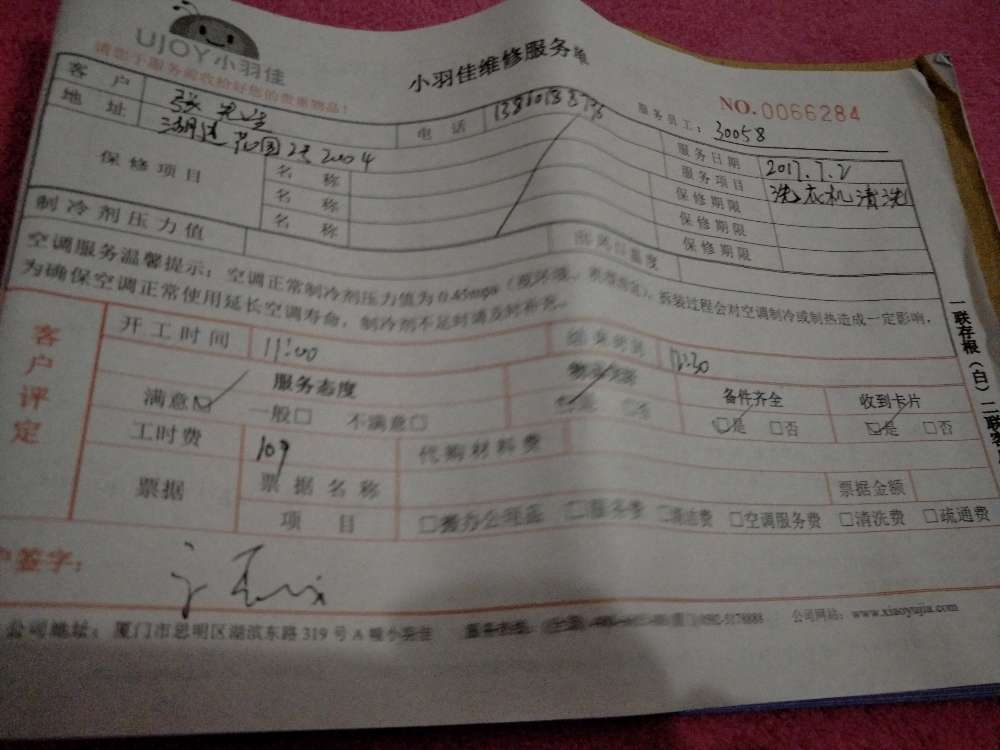 UJOY小羽佳
小羽佳维修服务
NO.0066284
服务员工：30058
客户 张先生 电话
地址 湖边花园 2004
服务日期 2017.7.2
服务项目 洗衣机清洗
保修项目 名称 保修期限
名称 保修期限
名称 保修期限
制冷剂压力值
空调服务温馨提示：空调正常制冷剂压力值为0.45mpa 拆装过程会对空调制冷或制热造成一定影响，
为确保空调正常使用延长空调寿命，制冷剂不足时请及时补充。
客户评定
开工时间 11:00 12:30
服务态度 备件齐全 收到卡片
满意□ 一般□ 不满意□ □是 □否 □是 □否
工时费 109 代购材料费
票据 票据名称 票据金额
项目 □清洁费 □空调服务费 □清洗费 □疏通费
签字：
公司地址：厦门市思明区湖滨东路319号A幢小羽佳 公司网站：www.xiaoyujia.com
一联存根（白）二联客